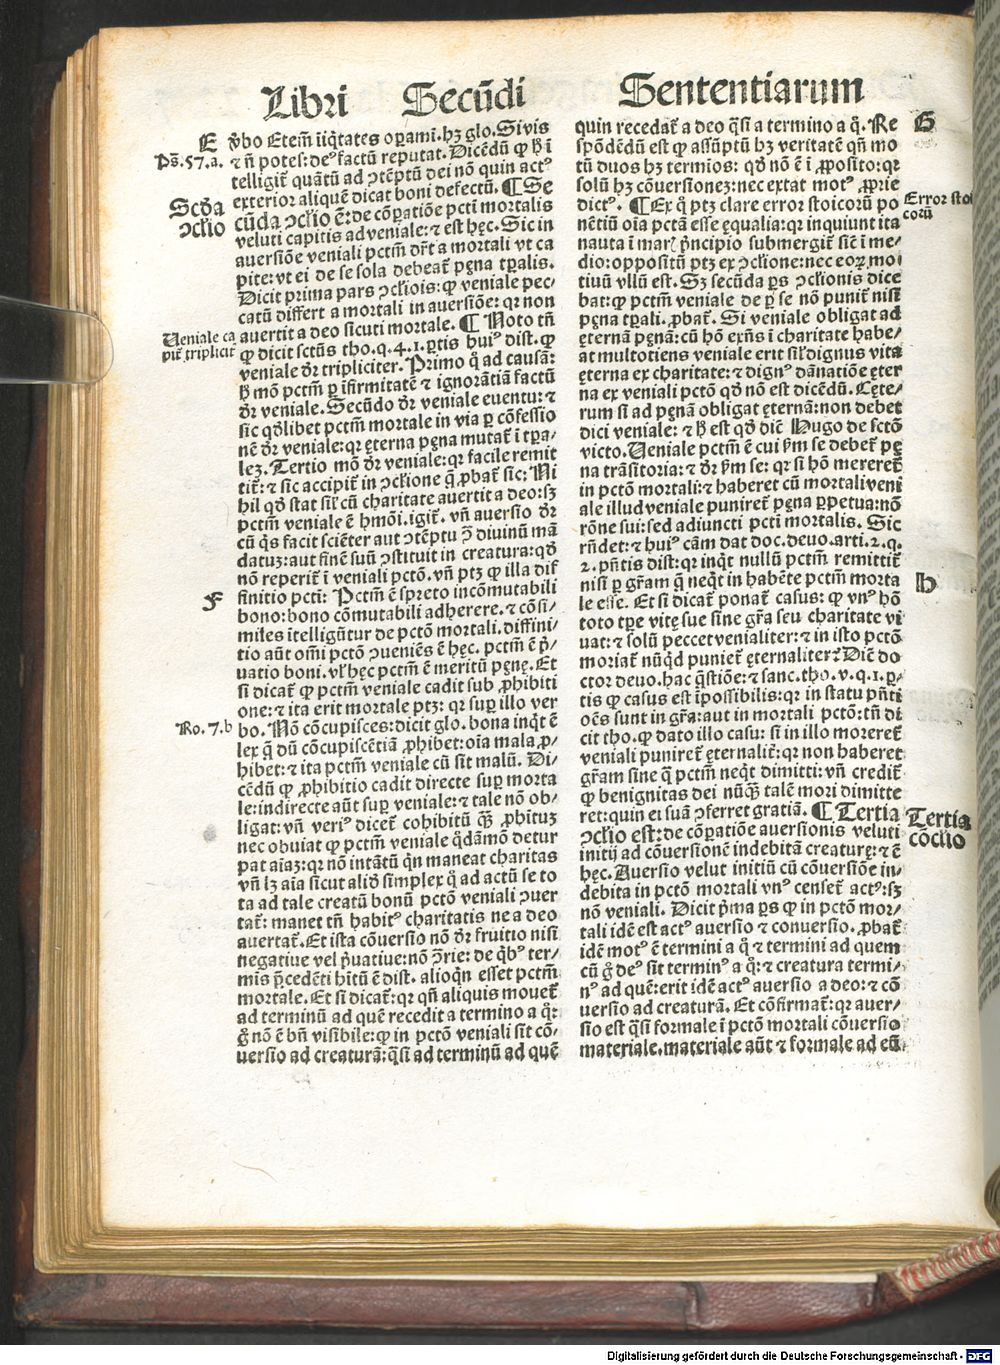 Libri Secūdi Sententiarum
E
Ps. 57. a.
Scd̄a
ↄclīo
Veniale ca
pit᷑ triplicit᷑
F
Ro. 7. b
v̄bo Etem̄ iniq̇tates oꝑami. hꝫ glo. Si vis
⁊ n̄ potes: deꝰ factū reputat. Dicēdū ꝙ hͦ ī
telligit᷑ quātū ad ↄtēptū dei nō quin actꝰ
exterior aliquē dicat boni defectū. ¶ Se
cūda ↄclīo ē: de cōꝑatiōe pcti mortalis
veluti capitis ad veniale: ⁊ est hęc. Sic in
auersiōe veniali pctm̄ dr̄t a mortali vt ca
pite: vt ei de se sola debeat᷑ pęna tꝑalis.
Dicit prima pars ↄclīois: ꝙ veniale pec⸗
catū differt a mortali in auersiōe: qꝛ non
auertit a deo sicuti mortale. ¶ Noto tn̄
ꝙ dicit sctūs tho. q. 4. 1. ꝑtis huiꝰ dist. ꝙ
veniale dr̄ tripliciter. Primo q̇̄ ad causā:
hͦ mō pctm̄ ꝑ īfirmitatē ⁊ ignorātiā factū
dr̄ veniale. Secūdo dr̄ veniale euentu: ⁊
sic qd̄libet pctm̄ mortale in via ꝑ cōfessio
nē dr̄ veniale: qꝛ ęterna pęna mutat᷑ ī tꝑa⸗
leꝫ. Tertio mō dr̄ veniale: qꝛ facile remit
tit᷑: ⁊ sic accipit᷑ in ↄclīone q̄ ꝓbat᷑ sic: Ni
hil qd̄ stat sil̄ cū charitate auertit a deo: sꝫ
pctm̄ veniale ē hmōi. igit᷑. vn̄ auersio dr̄
cū q̇s facit sciēter aut ↄtēptu ↄ̄ diuinū mā
datuꝫ: aut finē suū ↄstituit in creatura: qd̄
nō reperit᷑ ī veniali pctō. vn̄ ptꝫ ꝙ illa dif
finitio pcti: Pctm̄ ē spreto incōmutabili
bono: bono cōmutabili adherere. ⁊ cōsi⸗
miles ītelligūtur de pctō mortali. diffini⸗
tio aūt om̄i pctō ↄueniēs ē hęc. pctm̄ ē pͥ⸗
uatio boni. vl̓ hęc pctm̄ ē meritū pęnę. Et
si dicat᷑ ꝙ pctm̄ veniale cadit sub ꝓhibiti
one: ⁊ ita erit mortale ptꝫ: qꝛ suꝑ illo ver
bo. Nō cōcupisces: dicit glo. bona inq̇t ē
lex q̄ dū cōcupiscētiā ꝓhibet: oīa mala ꝓ⸗
hibet: ⁊ ita pctm̄ veniale cū sit malū. Di⸗
cēdū ꝙ ꝓhibitio cadit directe suꝑ morta
le: indirecte aūt suꝑ veniale: ⁊ tale nō ob⸗
ligat: vn̄ veriꝰ dicet᷑ cohibitū q̄ꝫ ꝓhibituꝫ
nec obuiat ꝙ pctm̄ veniale q̇dāmō detur
pat aīaꝫ: qꝛ nō intātū q̇n maneat charitas
vn̄ lꝫ aīa sicut aliqd̄ simplex q̇̄ ad actū se to
ta ad tale creatū bonū pctō veniali ↄuer
tat᷑: manet tn̄ habitꝰ charitatis ne a deo
auertat᷑. Et ista cōuersio nō dr̄ fruitio nisi
negatiue vel pͥuatiue: nō ↄ̄rie: de q̇bꝰ ter⸗
mis p̄cedēti hītū ē dist. alioqn̄ esset pctm̄
mortale. Et si dicat᷑: qꝛ qn̄ aliquis mouet᷑
ad terminū ad quē recedit a termino a q̊:
g̊ nō ē bn̄ visibile: ꝙ in pctō veniali sit cō⸗
uersio ad creaturā: q̄si ad terminū ad quē
quin recedat᷑ a deo q̄si a termino a q̊. Re
spōdēdū est ꝙ assūptū hꝫ veritatē qn̄ mo
tū duos hꝫ termīos: qd̄ nō ē ī ꝓposito: qꝛ
solū hꝫ cōuersioneꝫ: nec extat motꝰ ꝓprie
dictꝰ. ¶ Ex q̊ ptꝫ clare error stoicorū po
nētiū oīa pctā esse equalia: qꝛ inquiunt ita
nauta ī mari pͥncipio submergit᷑ sic̄ ī me⸗
dio: oppositū ptꝫ ex ↄclīone: nec eoꝝ mo
tiuū vllū est. Sꝫ secūda ꝑs ↄclīonis dice
bat: ꝙ pctm̄ veniale de ꝑ se nō punit᷑ nisi
pęna tꝑali. ꝓbat᷑. Si veniale obligat ad
ęternā pęnā: cū hō exn̄s ī charitate habe⸗
at multotiens veniale erit sil̓ dignus vita
ęterna ex charitate: ⁊ dignꝰ dānatiōe ęter
na ex veniali pctō qd̄ nō est dicēdū. Cęte⸗
rum si ad pęnā obligat ęternā: non debet
dici veniale: ⁊ hͦ est qd̄ diē Hugo de sctō
victo. Veniale pctm̄ ē cui s̄m se debet᷑ pę
na trāsitoria: ⁊ dr̄ s̄m se: qꝛ si hō mereret᷑
in pctō mortali: ⁊ haberet cū mortali veni
ale illud veniale puniret᷑ pęna ꝑpetua: nō
rōne sui: sed adiuncti pcti mortalis. Sic
rn̄det: ⁊ huiꝰ cām dat doc. deuo. arti. 2. q.
2. pn̄tis dist: qꝛ inq̇t nullū pctm̄ remittit᷑
nisi ꝑ gr̄am q̄ neq̇t in habēte pctm̄ morta
le esse. Et si dicat᷑ ponat᷑ casus: ꝙ vnꝰ hō
toto tꝑe vitę sue sine gr̄a seu charitate vi
uat: ⁊ solū peccet venialiter: ⁊ in isto pctō
moriat᷑ nūqd̄ puniet᷑ ęternaliter? Diē do
ctor deuo. hac q̄stiōe: ⁊ sanc. tho. v. q. 1. ꝑ⸗
tis ꝙ casus est īpossibilis: qꝛ in statu pn̄ti
oēs sunt in gr̄a: aut in mortali pctō: tn̄ di
cit tho. ꝙ dato illo casu: si in illo moreret᷑
veniali puniret᷑ ęternalit᷑: qꝛ non haberet
gr̄am sine q̄ pctm̄ neq̇t dimitti: vn̄ credit᷑
ꝙ benignitas dei nūq̄ꝫ talē mori dimitte
ret: quin ei suā ↄferret gratiā. ¶ Tertia
ↄclīo est: de cōꝑatiōe auersionis veluti
initij ad cōuersionē indebitā creaturę: ⁊ ē
hęc. Auersio velut initiū cū cōuersiōe in⸗
debita in pctō mortali vnꝰ censet᷑ actꝰ: sꝫ
nō veniali. Dicit pͥma ꝑs ꝙ in pctō mor⸗
tali idē est actꝰ auersio ⁊ conuersio. ꝓbat᷑
idē motꝰ ē termini a q̊ ⁊ termini ad quem
cū g̊ deꝰ sit terminꝰ a q̊: ⁊ creatura termi⸗
nꝰ ad quē: erit idē actꝰ auersio a deo: ⁊ cō
uersio ad creaturā. Et cōfirmat᷑: qꝛ auer⸗
sio est q̄si formale ī pctō mortali cōuersio
materiale. materiale aūt ⁊ formale ad eū
G
Error stoi
corū
H
Tertia
cōclīo
Digitalisierung gefördert durch die Deutsche Forschungsgemeinschaft - DFG